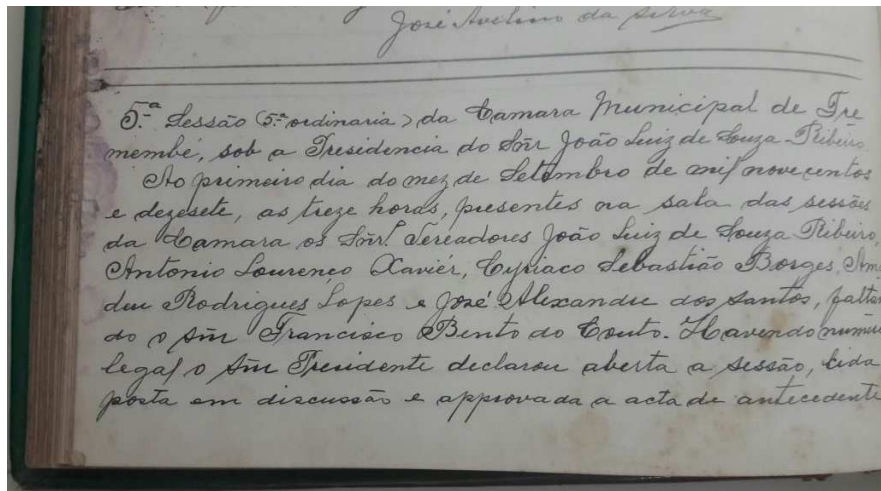 José Avelino da Silva
5.ª Sessão (5.ª ordinaria) da Camara Municipal de Tre
membé, sob a Presidencia do Snr João Luiz de Souza Ribeiro
Ao primeiro dia do mez de Setembro de mil novecentos
e dezesete, as treze horas, presentes na sala das sessões
da Camara os Snr.s Vereadores João Luiz de Souza Ribeiro,
Antonio Lourenço Xavier, Cyriaco Sebastião Borges, Ama
deu Rodrigues Lopes e José Alexandre dos Santos, faltan
do o Snr Francisco Bento do Couto. Havendo numero
legal o Snr Presidente declarou aberta a sessão, lida
posta em discussão e approvada a acta de antecedente